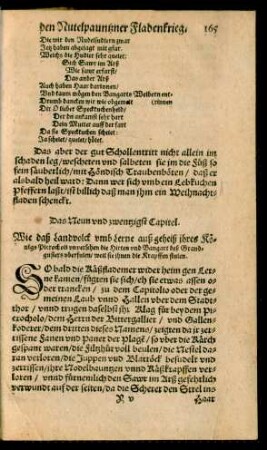 den Nutelpauntzner Fladenkrieg. 165
Die vit den Nodelfidlern zwar
Jetz haben abgesagt mit gfar.
Welchs die Hudler sehr quelet:
Sich Gawr im Arß
Wie sawr erfarst/
Das ander Arß
Auch haben Haar darvonen/
Vnd kaum mögen den Bangarts Weibern ent-
Drumb dancken wir wie obgemelt (rinnen
Der O lieber Speckkuchenheld/
Der du ankamst sehr hart
Dein Mutter auff der fart
Da sie Speckkuchen schelet:
Ja schelet/ quelet/ hölet.
Das aber der gut Schollentritt nicht allein im
schaden leg/ wescheten vnd salbeten sie jm die Füß so
fein säuberlich/ mit Händisch Traubenhöten/ daß er
alobald heil ward: Dann wer sich vmb ein Lebkuchen
Pfeffern laßt/ ist billich daß man jhm ein Weihnacht-
fladen schenckt.
Das Neun vnd zwentzigst Capitel.
Wie daß Landvolck vmb Lerne auß geheiß jhres Kö-
nigs Picrocholi vnversehens die Hirten vnd Bangart deß Grand-
gusiers oberfielen/ weil sie jhnen die Krapffen stulen.
SO bald die Käßflademer wider heim gen Ler-
ne kamen/ fügten sie sich/ eh sie etwas assen o-
der trancken/ zu dem Capitolio oder der ge-
meinen Laub vnnd Hallen vber dem Stadt-
thor/ vnnd trugen daselbst jhr Klag für bey dem Pi-
crocholo/ dem Herrn der Bittergallier/ vnd Gallen-
koderer/ dem dritten dieses Namens/ zeigten da jr zer-
rissene Fanen vnd paner der Plagt/ so vber die Kärch
gespant waren/ die Filtzhüt voll beulen/ die Nestel da-
ran verloren/ die Juppen vnd Blatröck besudelt vnd
zerrissen/ ihre Nodelbauntzen vnnd Käßkrapffen ver-
loren/ vnnd fürnemlich den Sawr im Arß gefehrlich
verwundt auff der seiten/ da die Scherer den Strel ins
X v Haar